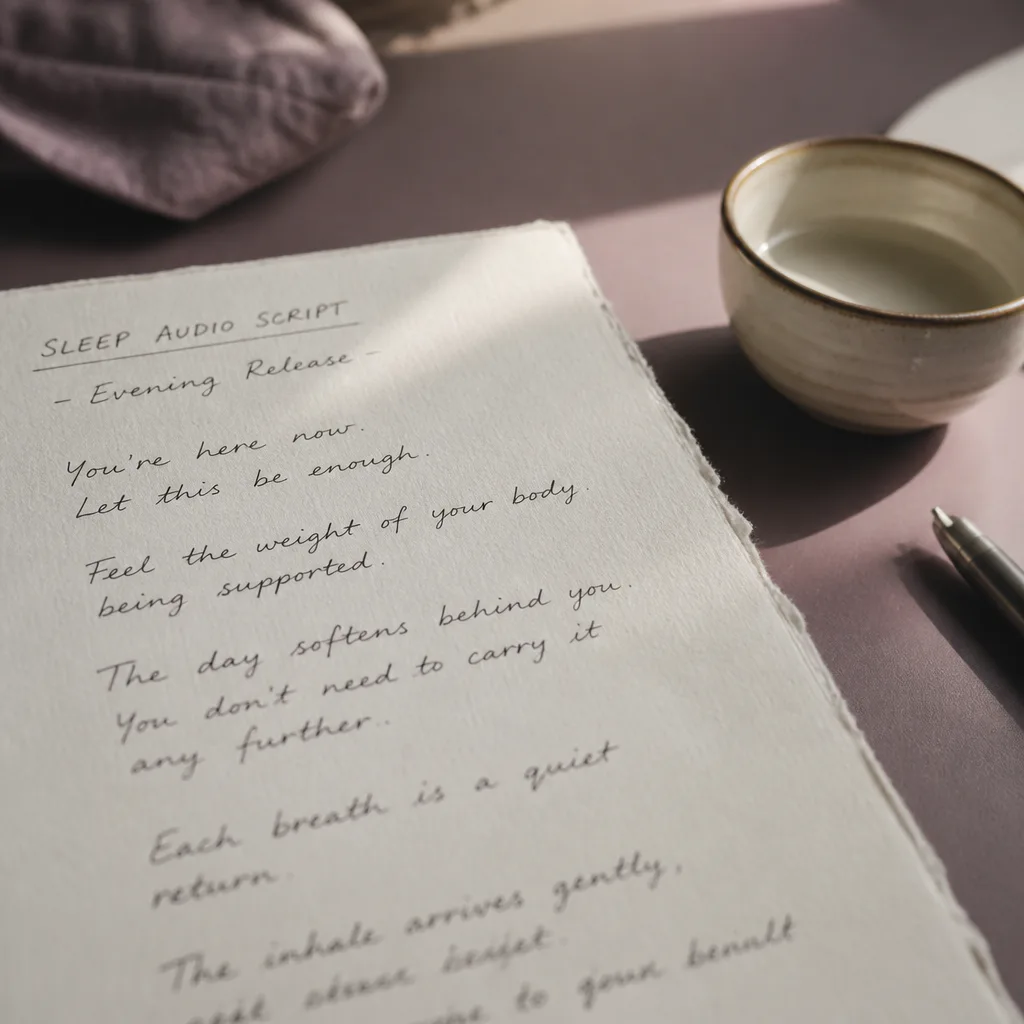 SLEEP AUDIO SCRIPT
– Evening Release –
You're here now.
Let this be enough.
Feel the weight of your body.
being supported.
The day softens behind you.
You don't need to carry it
any further..
Each breath is a quiet
return.
The inhale arrives gently,
to